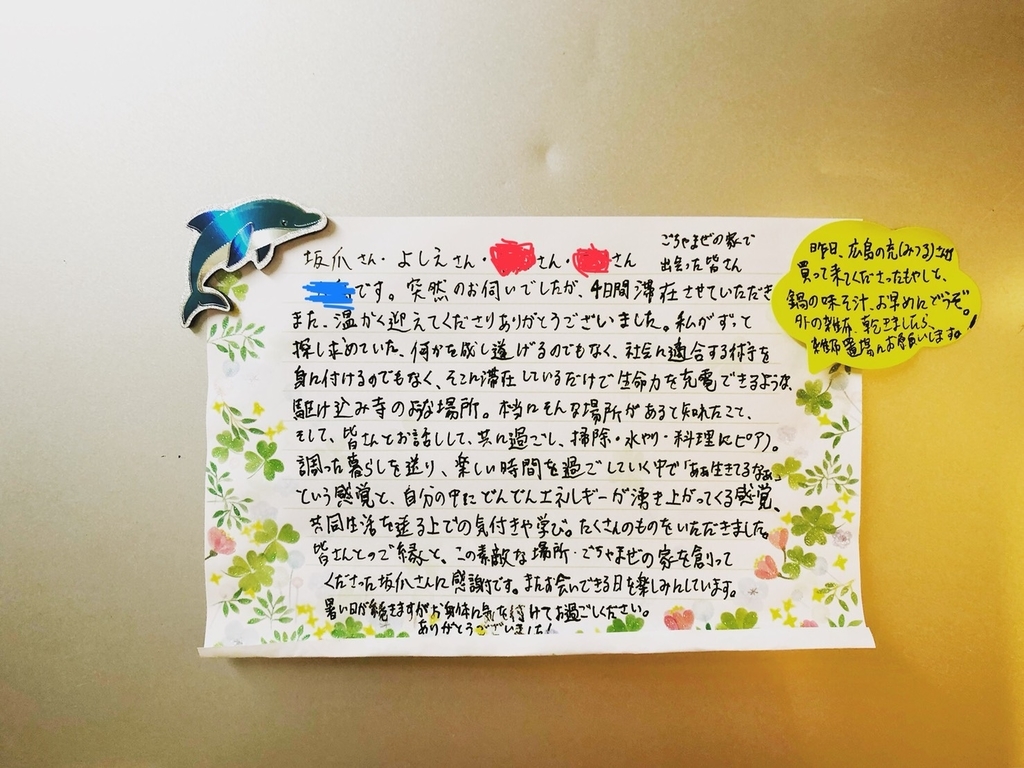 坂爪さん・よしえさん・さん・さん
ごちゃまぜの家で
出会った皆さん
です。突然のお伺いでしたが、4日間滞在させていただき
また、温かく迎えてくださりありがとうございました。私がずっと
探し求めていた、何かを成し遂げるのでもなく、社会に適合する術を
身に付けるのでもなく、そこに滞在しているだけで生命力を充電できるような、
駆け込み寺のような場所。本当にそんな場所があると知れたこと、
そして、皆さんとお話しして、共に過ごし、掃除・水やり・料理にピアノ。
調った暮らしを送り、楽しい時間を過ごしていく中で「ああ生きてるなぁ」
という感覚と、自分の中にどんどんエネルギーが湧き上がってくる感覚、
共同生活を送る上での気付きや学び。たくさんのものをいただきました。
皆さんとのご縁と、この素敵な場所・ごちゃまぜの家を創って
くださった坂爪さんに感謝です。またお会いできる日を楽しみにしています。
暑い日が続きますがお身体に気を付けてお過ごしください。
ありがとうございました!
昨日、広島の充(みつる)さんが
買って来てくださったもやしと、
鍋の味そ汁、お早めにどうぞ。
外の雑紙、乾きましたら、
雑紙置場にお願いします。